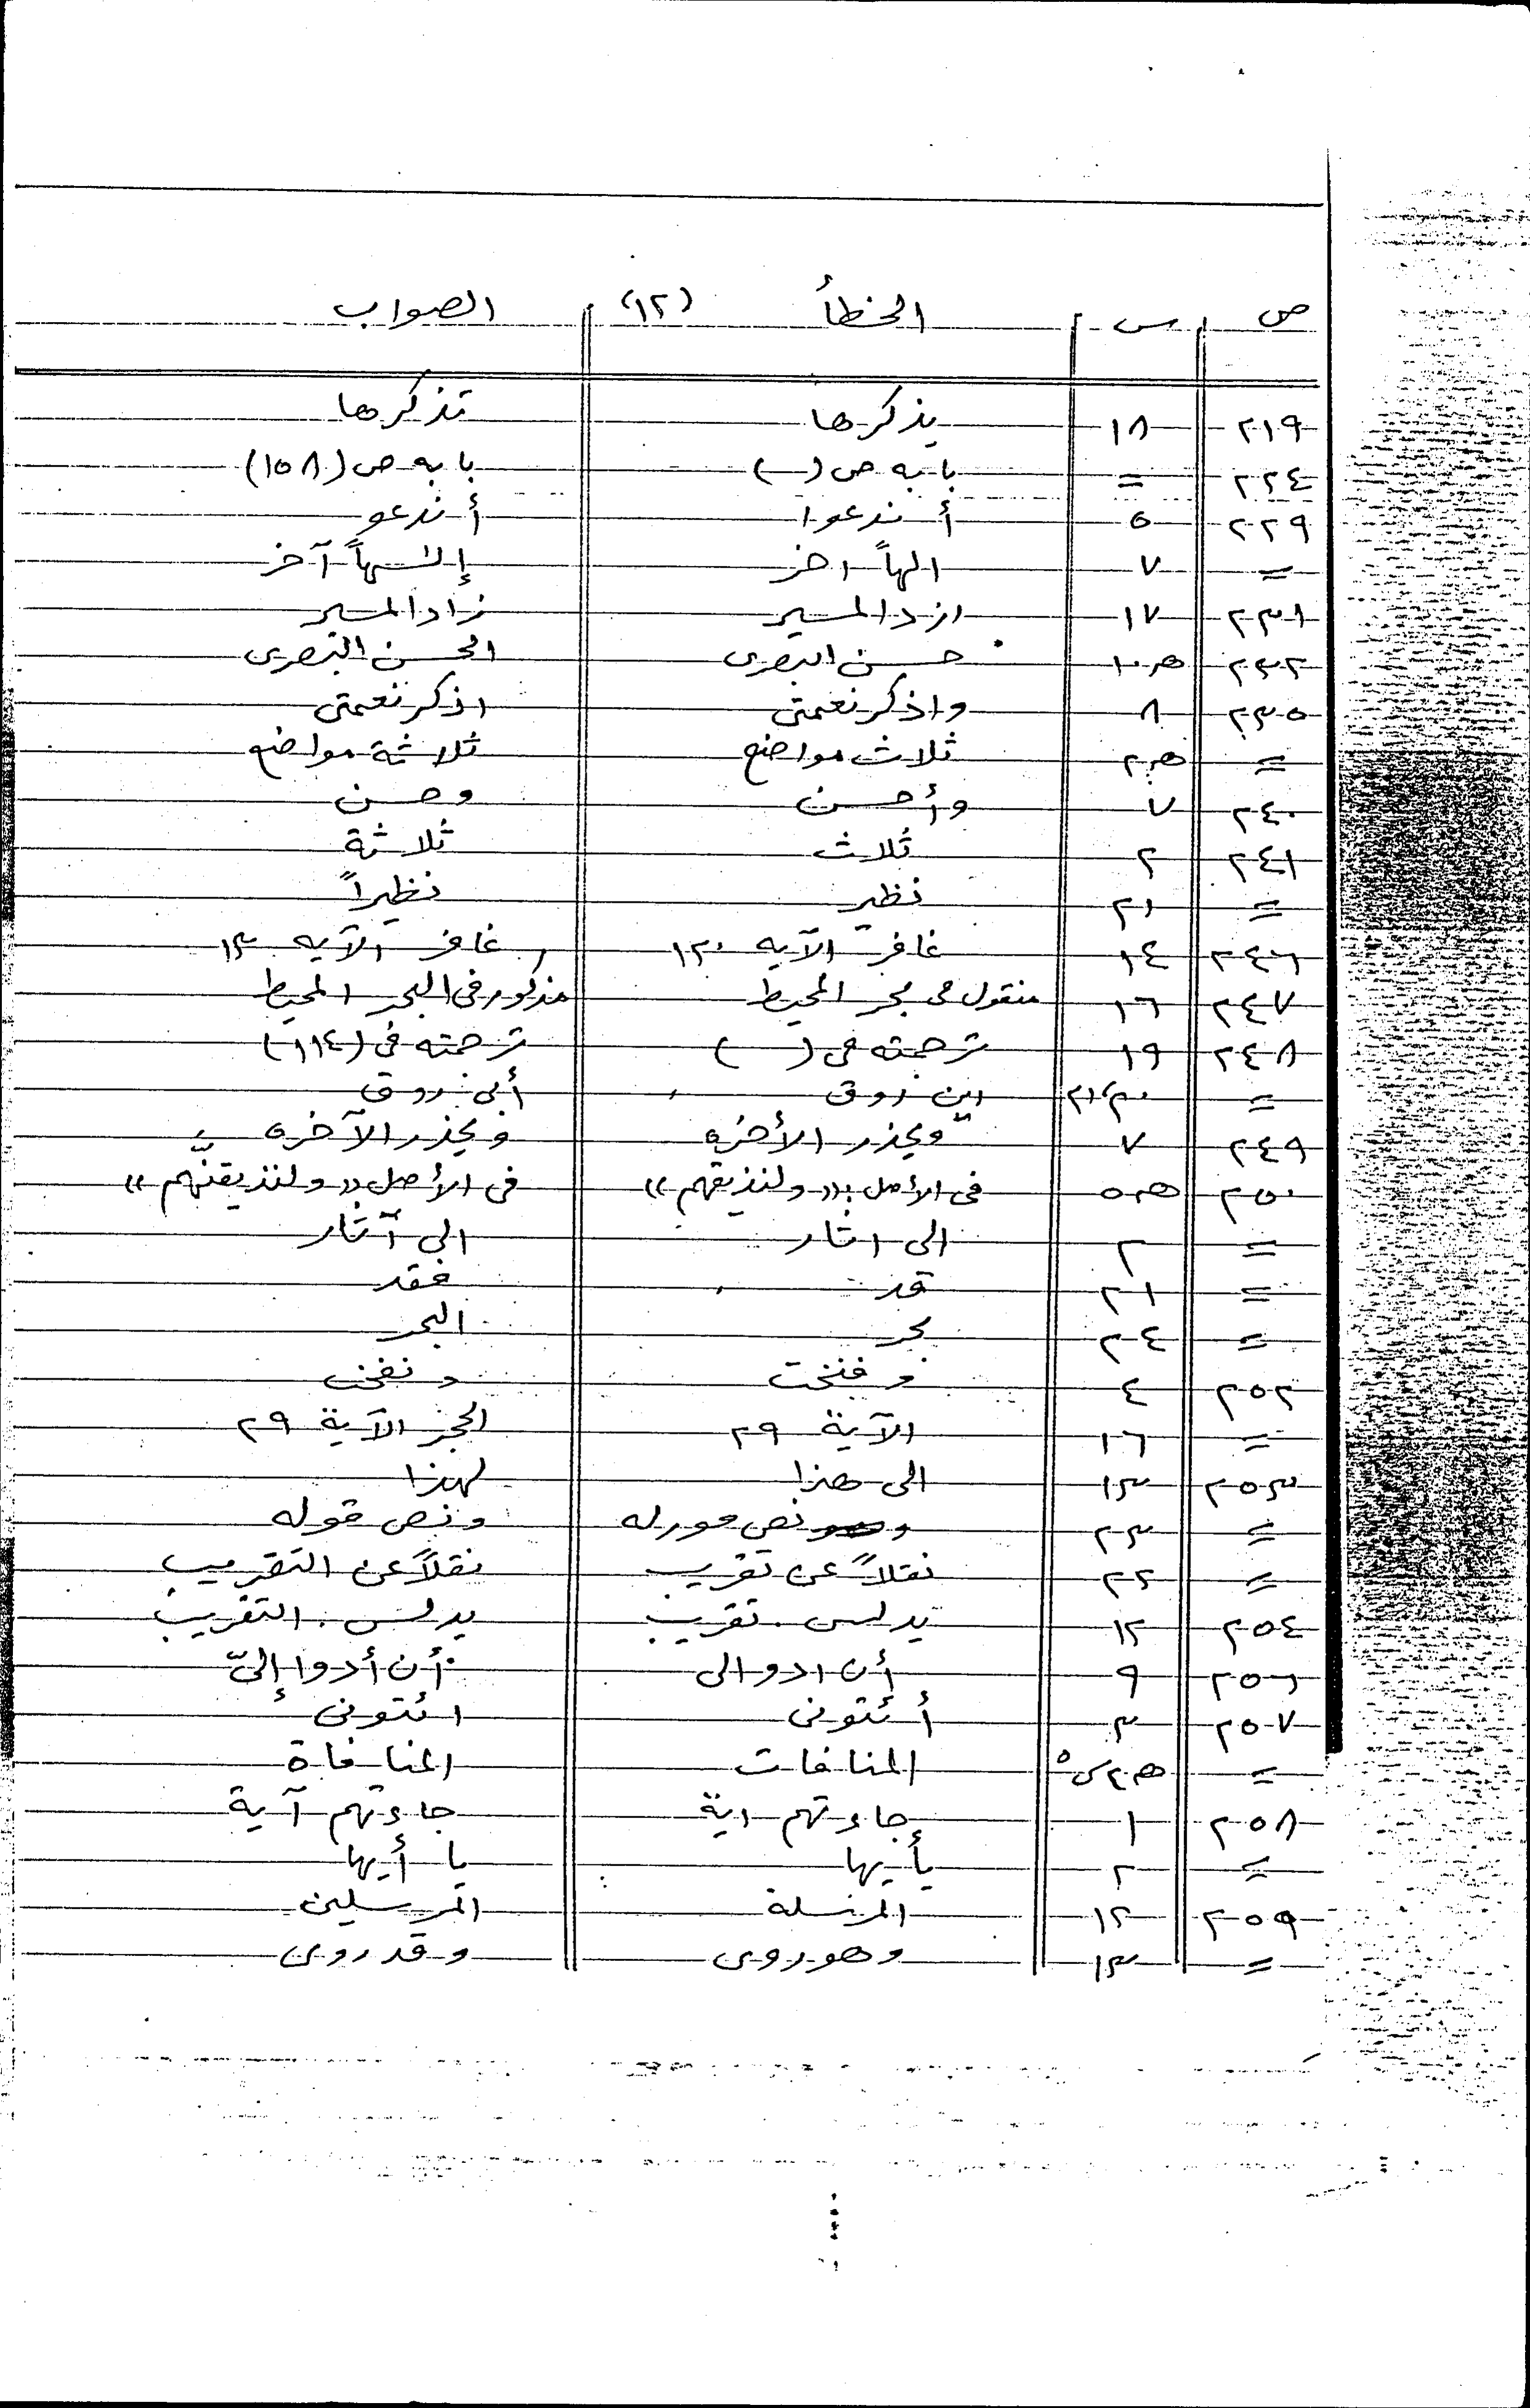 ص س الخطأ (١٢) الصواب
٢١٩ ١٨ يذكرها تذكرها
٢٢٤ = بابه ص ( ) بابه ص (١٥٨)
٢٢٩ ٥ أندعوا أندعو
= ٧ الهاً اخر إلـهاً آخر
٢٣١ ١٧ ازد المسير زاد المسير
٢٣٢ هـ١٠ حسن البصرى الحسن البصرى
٢٣٥ ٨ واذكر نعمتى اذكر نعمتى
= هـ٢ ثلاث مواضع ثلاثة مواضع
٢٤٠ ٧ وأحسن وحسن
٢٤١ ٢ ثلاث ثلاثة
= ٢١ نظير نظيراً
٢٤٦ ١٤ غافر الآيه ١٣٠ غافر الآيه ١٣
٢٤٧ ١٦ منقول فى بحر المحيط مذكور فى البحر المحيط
٢٤٨ ١٩ ترجمته فى ( ) ترجمته فى (١١٤)
= ٢١،٢٠ ابن روق أبى روق
٢٤٩ ٧ ويحذر الأخره ويحذر الآخره
٢٥٠ هـ٥ فى الأصل: «ولنذيقهم» فى الأصل «ولنذيقنّهم»
= ٢ الى اثار الى آثار
= ٢١ قد فقد
= ٢٤ بحر البحر
٢٥٢ ٤ وفنخت ونفخت
= ١٦ الآية ٢٩ الحجر الآية ٢٩
٢٥٣ ١٣ الى هذا لهذا
= ٢٣ نص ونص قوله
= ٢٢ نقلاً عن تقريب نقلاً عن التقريب
٢٥٤ ١٢ يدلس. تقريب يدلس. التقريب
٢٥٦ ٩ أن ادوالى أن أدوا إلىّ
٢٥٧ ٣ أئتونى ائتونى
= هـ٢ س٥ المنافات المنافاة
٢٥٨ ١ جاءتهم اية جاءتهم آية
= ٢ يأيها يا أيها
٢٥٩ ١٢ المرسلة المرسلين
= ١٣ وهو روى وقد روى